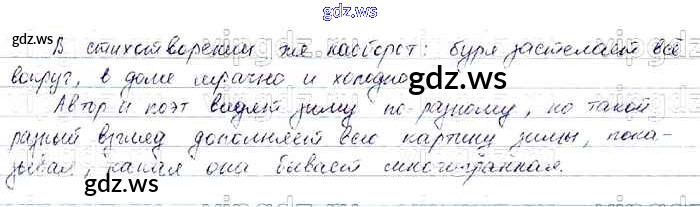 gdz.ws
В стихотворении же наоборот: буря застелает всё
вокруг, в доме мрачно и холодно.
gdz.ws
Автор и поэт видят зиму по-разному, но такой
разный взгляд дополняет всю картину зимы, пока-
зывая, какая она бывает многогранная.
gdz.ws
gdz.ws